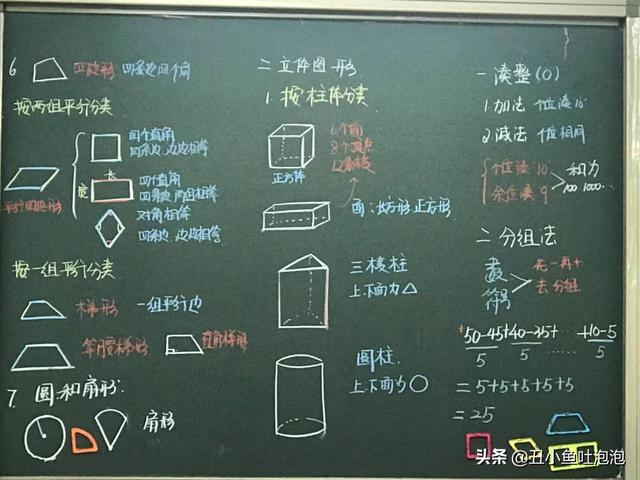 6 四边形 四条边四个角
按两组平行分类
四个直角
四条边、边边相等
长
宽
四个直角
四条边,两组相等
平行四边形
对角相等
四条边、边边相等
按一组平行分类
梯形 一组平行边
等腰梯形 直角梯形
7. 圆和扇形.
扇形
二立体图形
1. 按柱体分类
6个面
8个顶点
12条棱
正方体
面:长方形.正方形
三棱柱
上.下面为△
圆柱
上.下面为○
一凑整(0)
1.加法 个位凑10
2.减法 个位相同
个位凑'10'
余位凑'9'
和为
100 1000…
二分组法
数
符号
先一再+
去分组
+50-45+40-35+……+10-5
5 5 5
=5+5+5+5+5
=25
头条 @丑小鱼吐泡泡